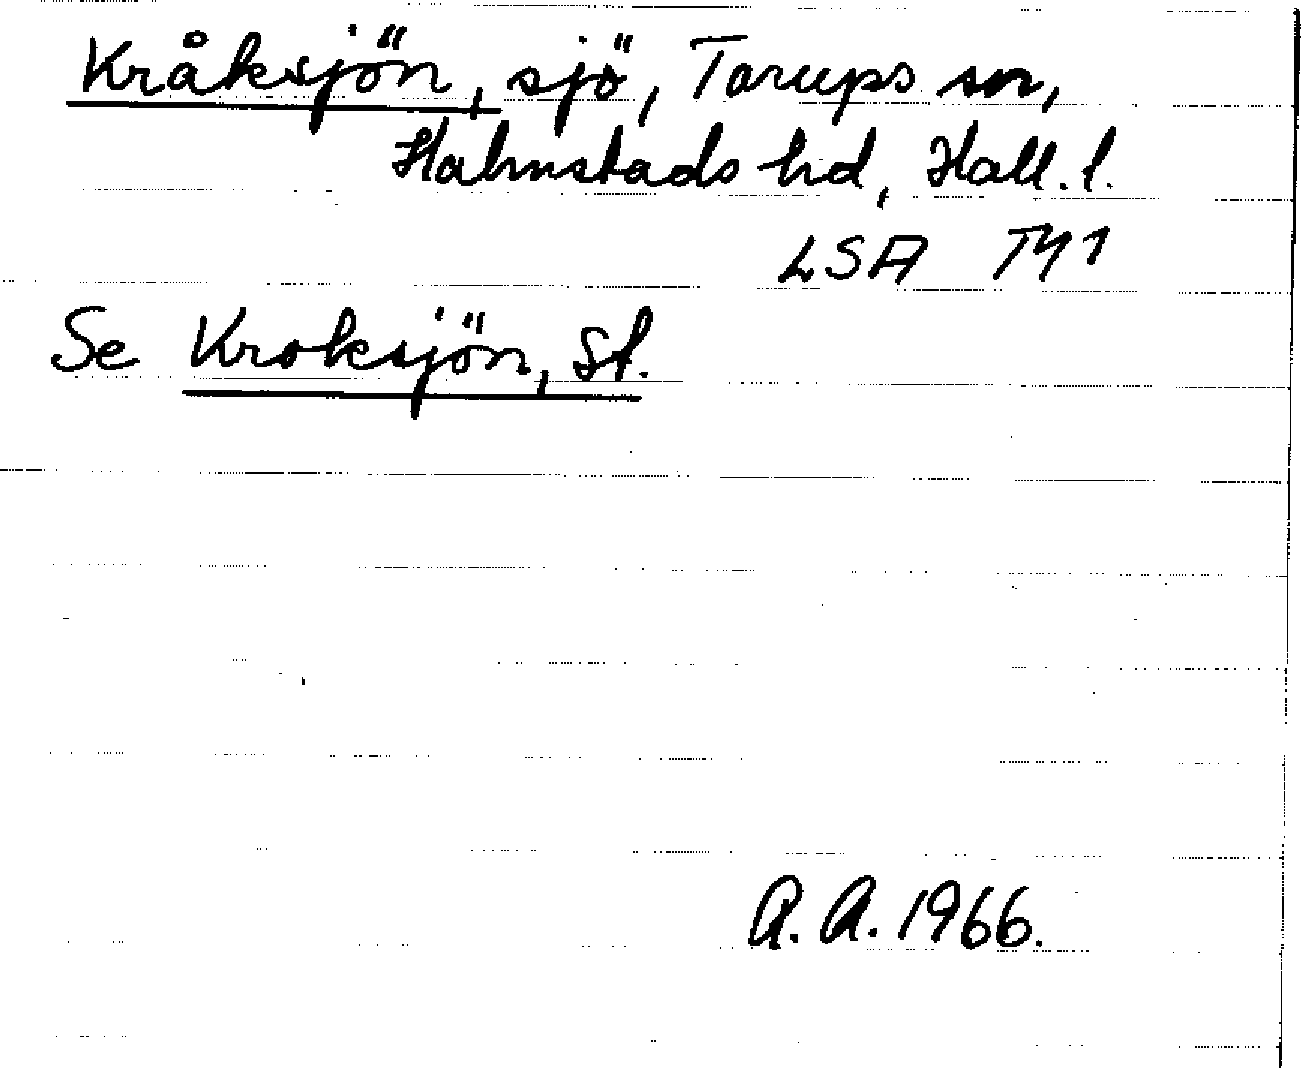 Kråksjön, sjö, Torups sn,
Halmstads hd, Hall. l.
LSA TY1
Se Kroksjön, St.
A.A. 1966.